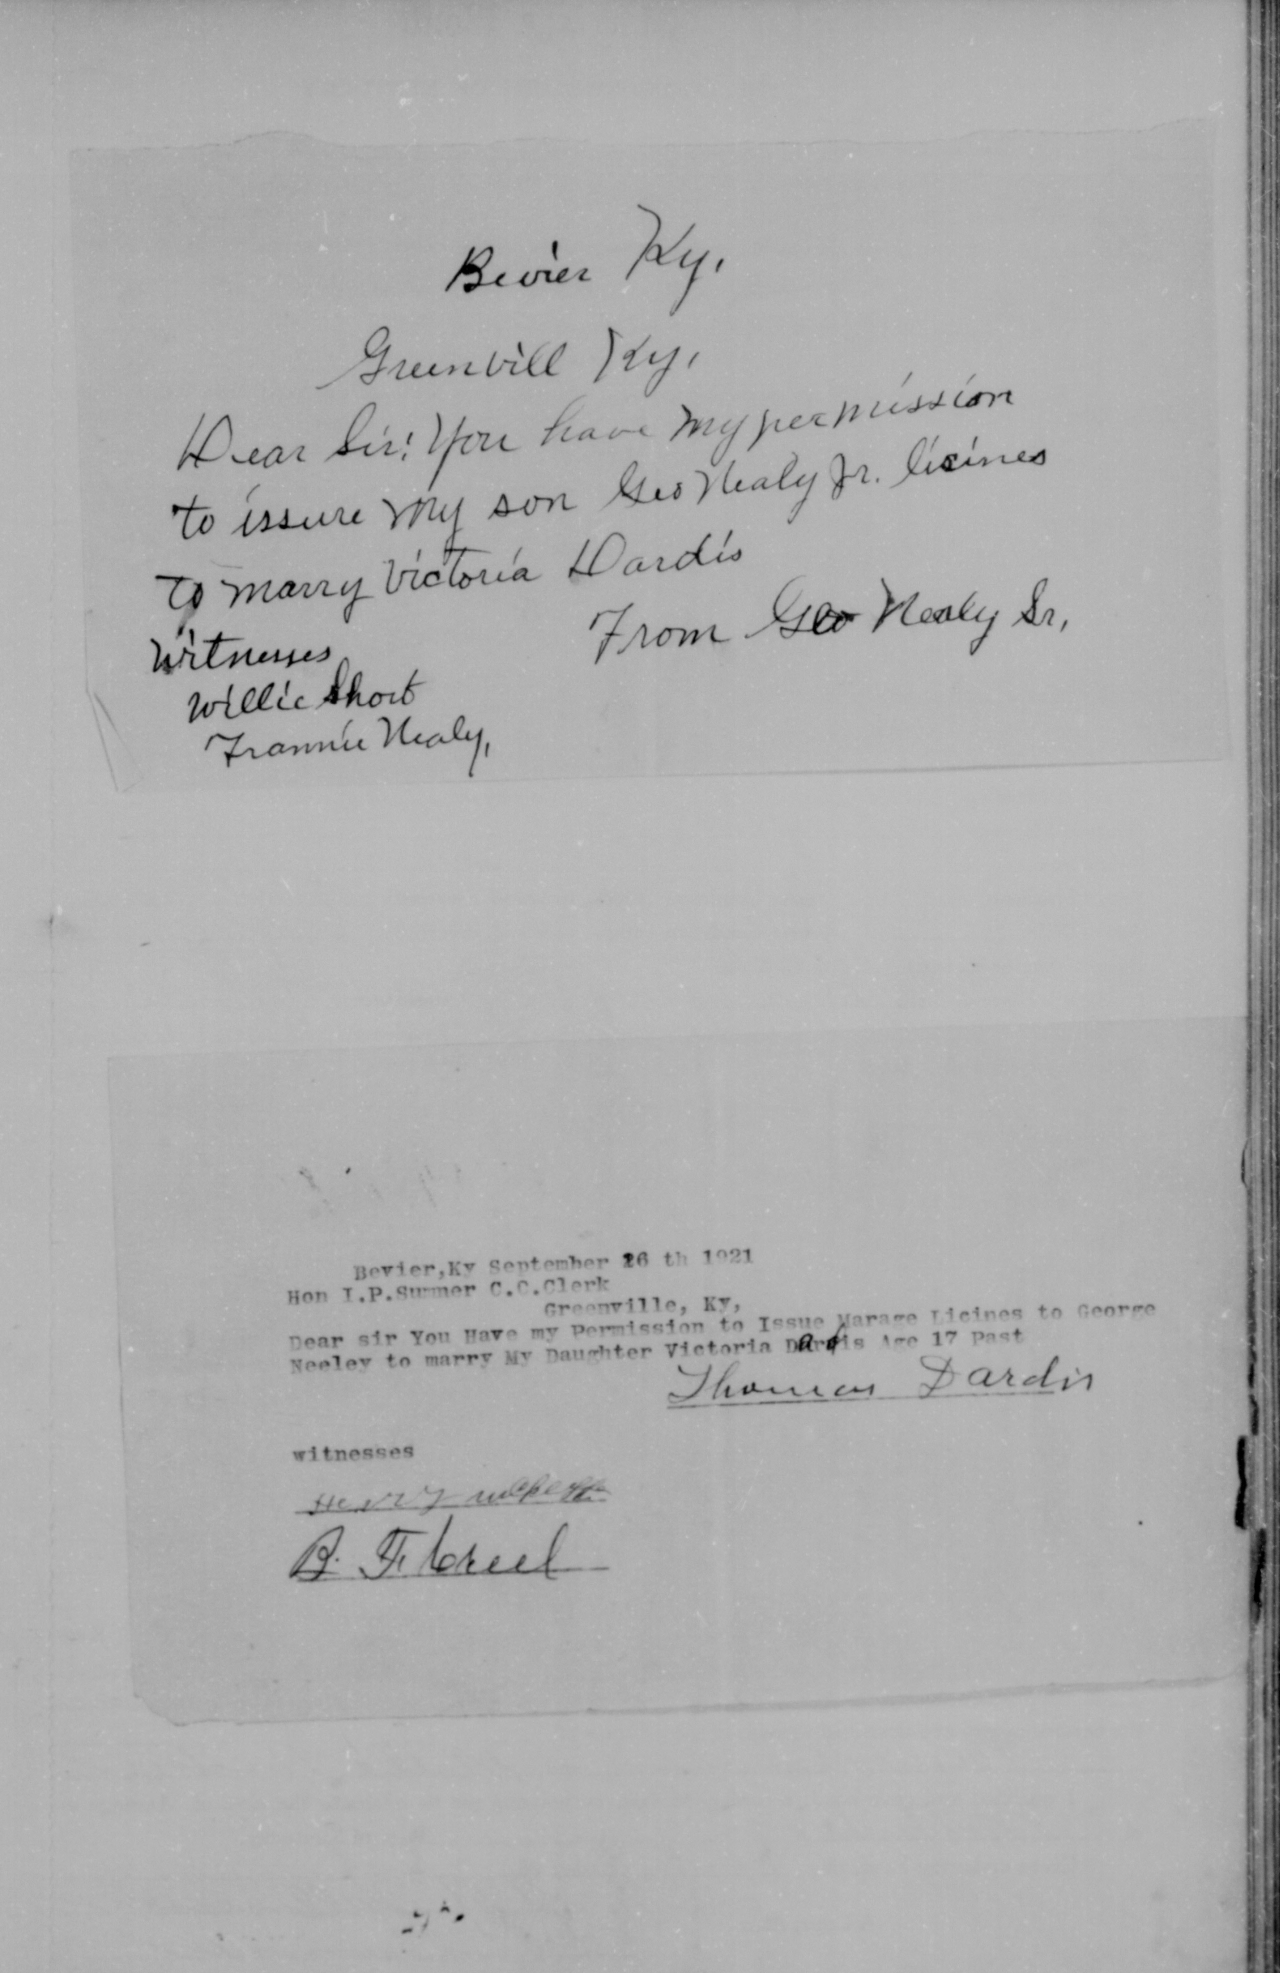 Bevier Ky.
Greenvill Ky.
Dear Sir: You have my permission
to issure my son Geo Nealy Jr. licines
to marry Victoria Dardis
From Geo Nealy Sr.
Witnesses
Willie Short
Frannie Nealy,
Bevier,Ky September 26 th 1921
Hon I.P.Summer C.C.Clerk
Greenville, Ky,
Dear sir You Have my Permission to Issue Marage Licines to George
Neeley to marry My Daughter Victoria Dardis Age 17 Past
Thomas Dardis
witnesses
Henry
B. F. Creel